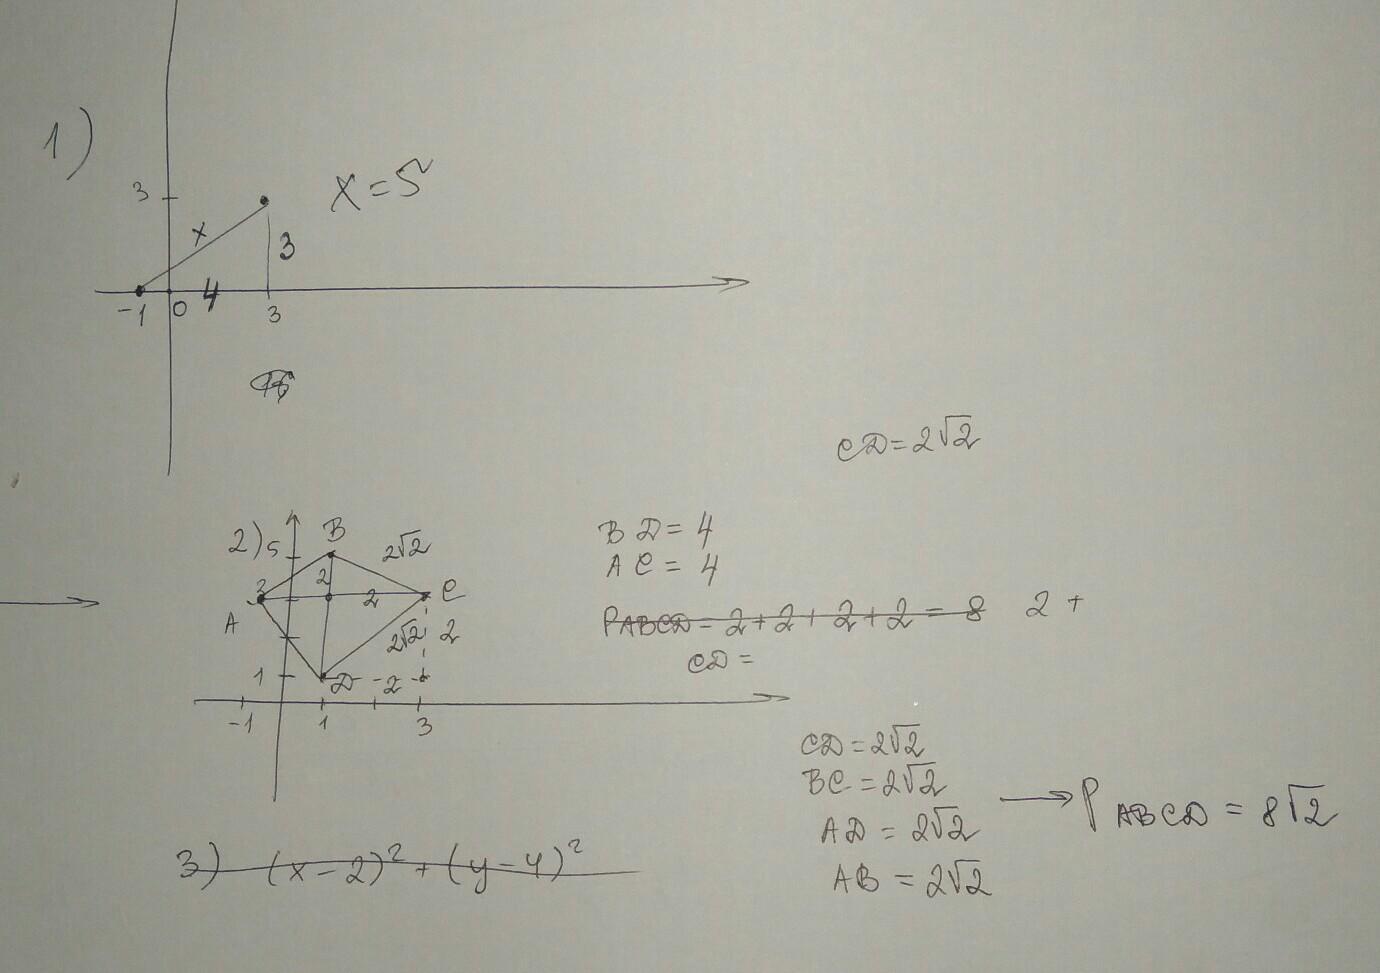 1)
3
x
x = 5
3
-1 0 4 3
CD = 2√2
2) 5 B 2√2
A 3 2 2 C
2√2 2
1 D - 2 -
-1 1 3
BD = 4
AC = 4
PABCD = 2 + 2 + 2 + 2 = 8 2 +
CD =
CD = 2√2
BC = 2√2
AD = 2√2
AB = 2√2
→ PABCD = 8√2
3) (x - 2)² + (y - 4)²